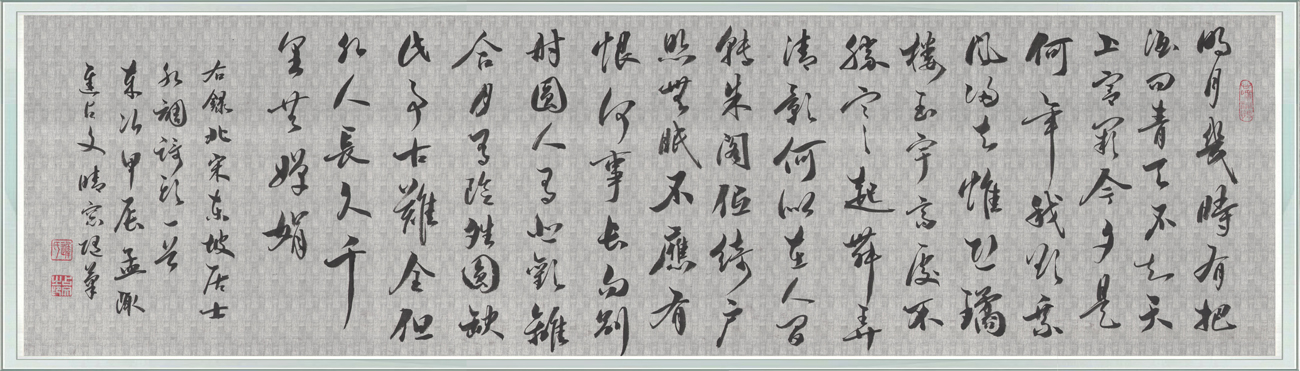 明月幾時有把
酒問青天不知天
上宮闕今夕是
何年我欲乘
風歸去惟恐瓊
樓玉宇高處不
勝寒起舞弄
清影何似在人間
轉朱閣低綺户
照無眠不應有
恨何事長向別
時圓人有悲歡離
合月有陰晴圓缺
此事古難全但
願人長久千
里共嬋娟
右錄北宋東坡居士
水調歌頭一首
歲次甲辰孟陬
文晴窗